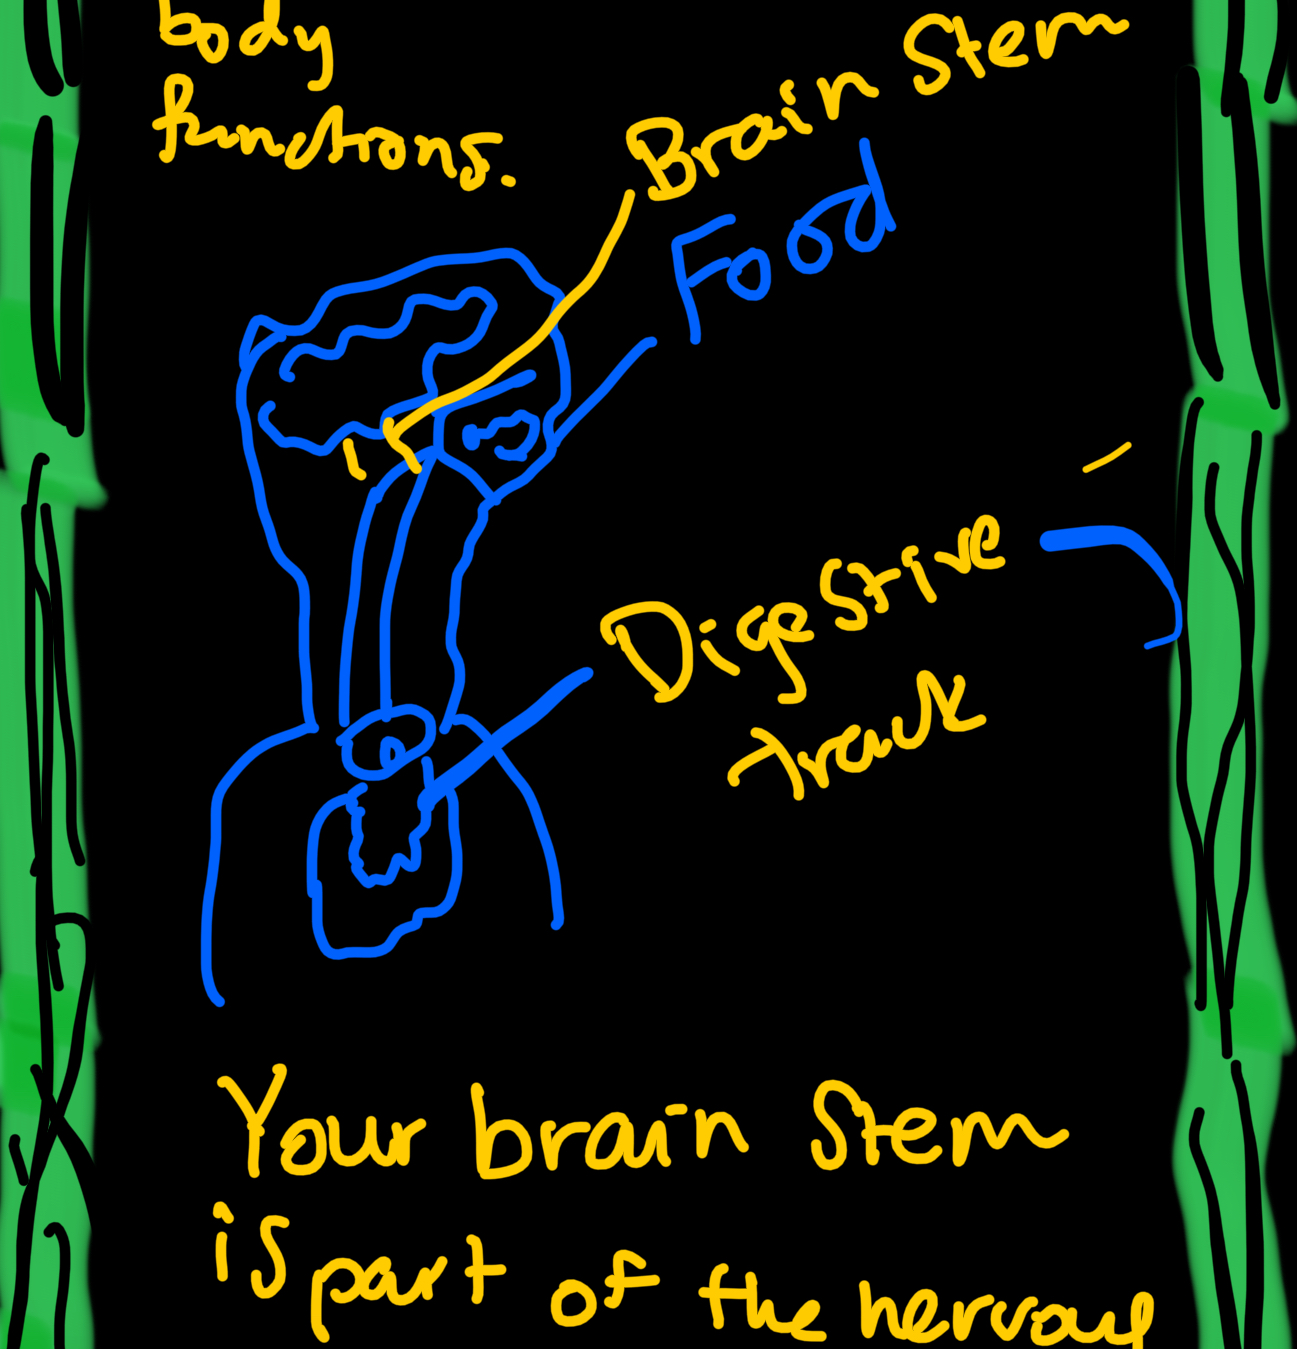 body
functions.
Brain Stem
Food
Digestive
track
Your brain stem
is part of the nervous